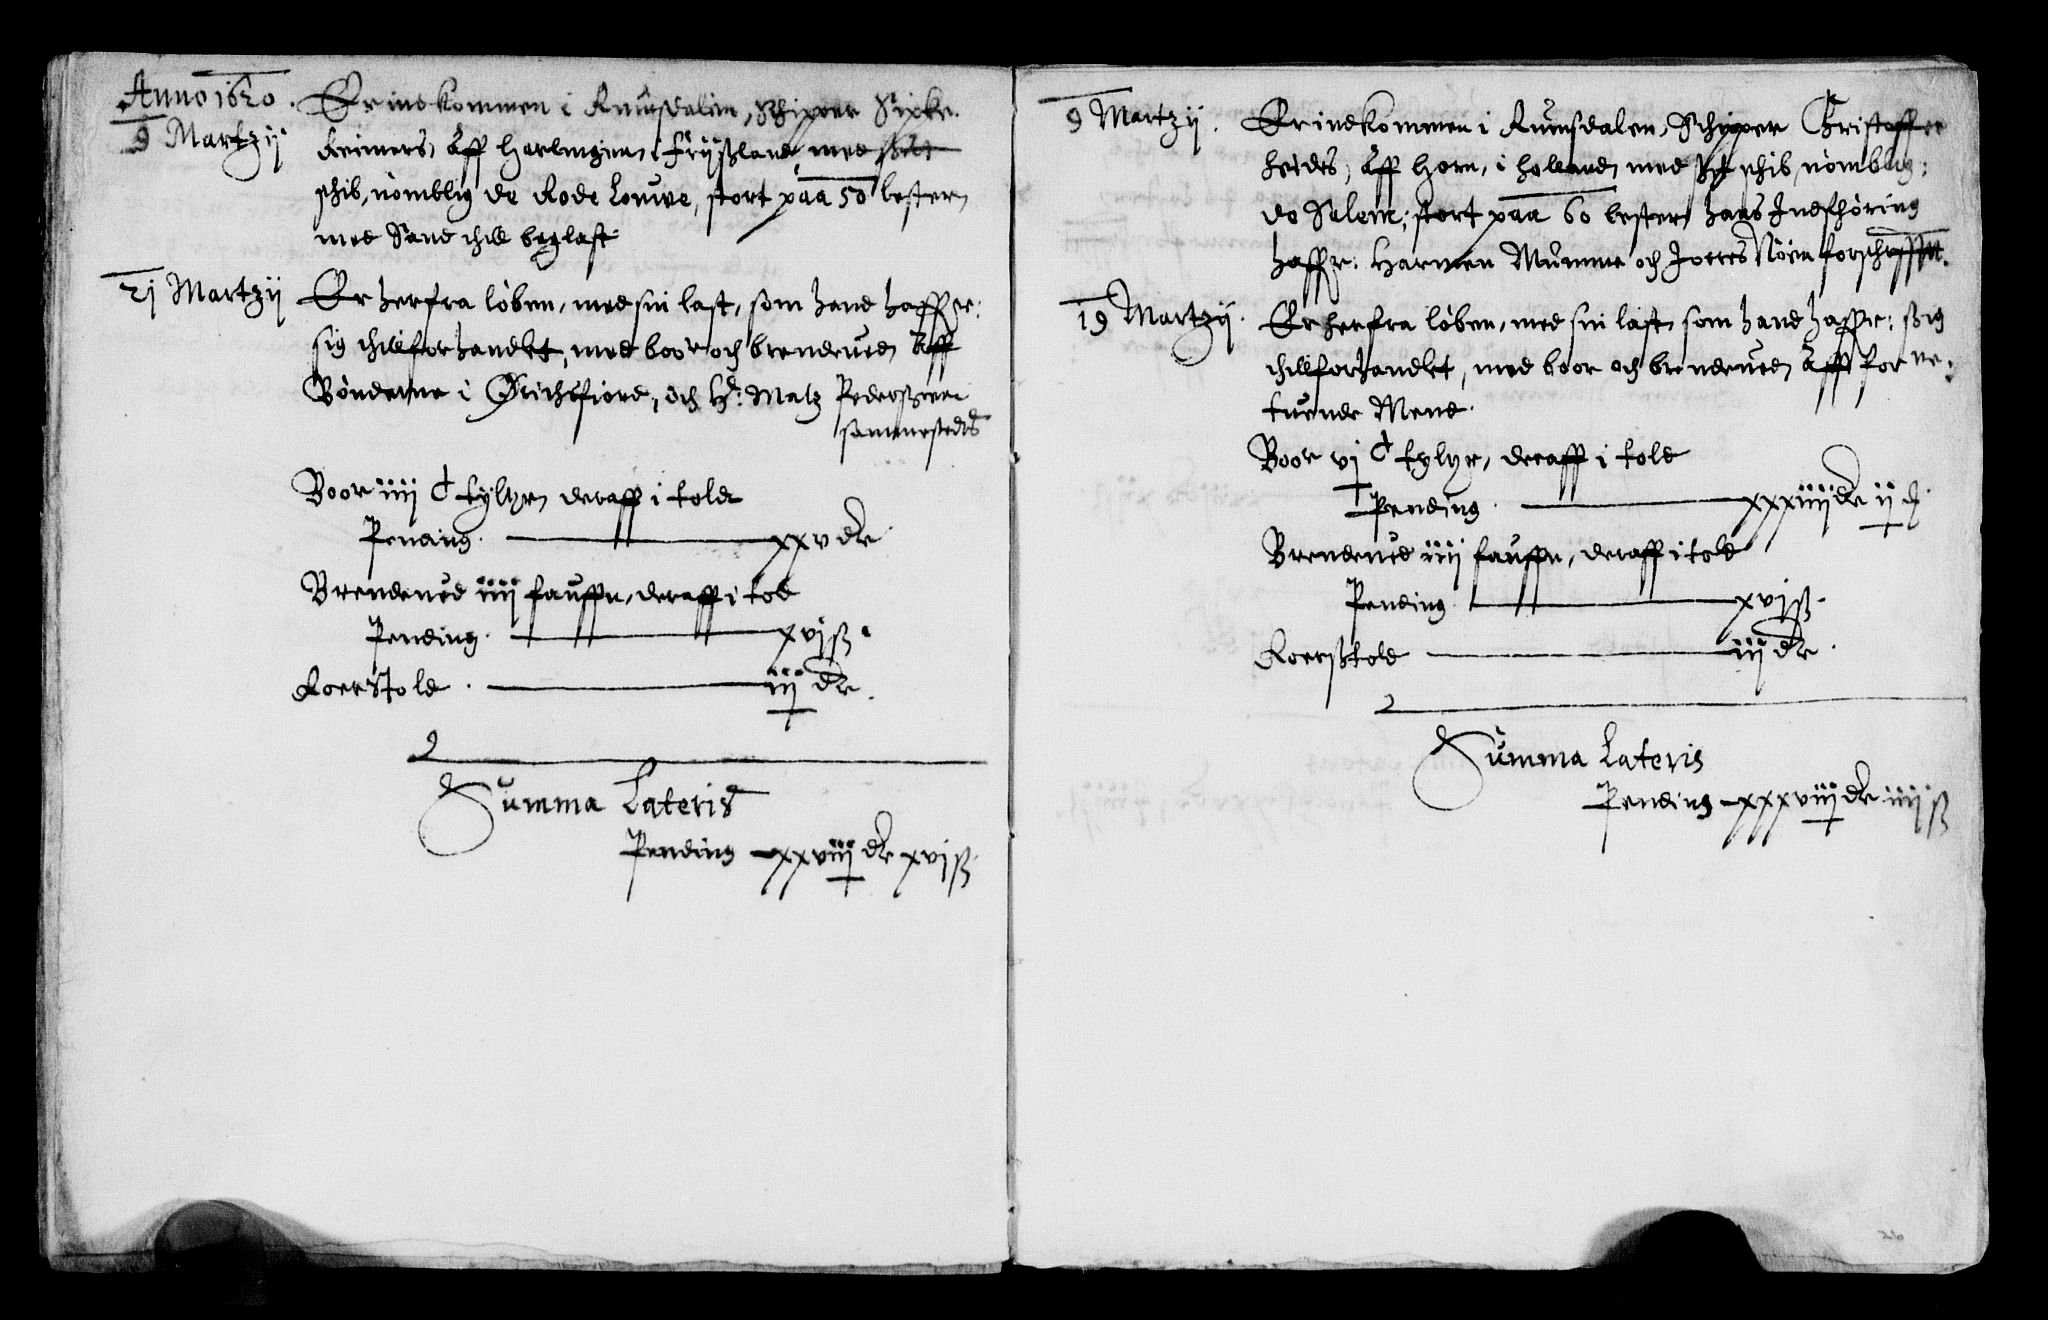 Anno 1620.
9 Martzij
Er indkommen i Rumsdalen, Schipper Sixke
Reimers, Aff Harlingen i Frijßland, med sit
schib, nömblig de Rode Louwe, stort paa 50 lester,
med Sand thill baglast.
21 Martzij
Er herfra löben, med sin last, som hand haffer:
sig thillforhandlet, med boor och brendeved Aff
Bönderne i Ørichsfiord, och Hr: Matz Pederßøen
sammestedts
Boor iiij C tylter, deraff i told
Pending. xxv dr
Brendeved iiij fauffn, deraff i told
Pending. xvj ß.
Roerstold. iij dr.
Summa Lateris
Pending xxviij dr xvj ß.
9 Martzij.
Er indkommen i Rumsdalen, Schipper Christoffer
Feddes, Aff Horn, i Holland, med sit schib, nömblig:
de Salem, stort paa 60 lester, hans Indfhöring
haffr: Harmen Mumme och Jorres Nöem forschreffttt.
19 Martzij.
Er herfra löben, med sin last, som hand haffr: sig
thillforhandlet, med boor och brendeved Aff for ne:
tuende Mend.
Boor vj C tylter, deraff i told
Pending. xxxiiij dr ij d.
Brendeved iiij fauffn, deraff i told
Pending. xvj ß.
Roerßtold iij dr.
Summa Lateris
Pending xxxviij dr iiij ß
26